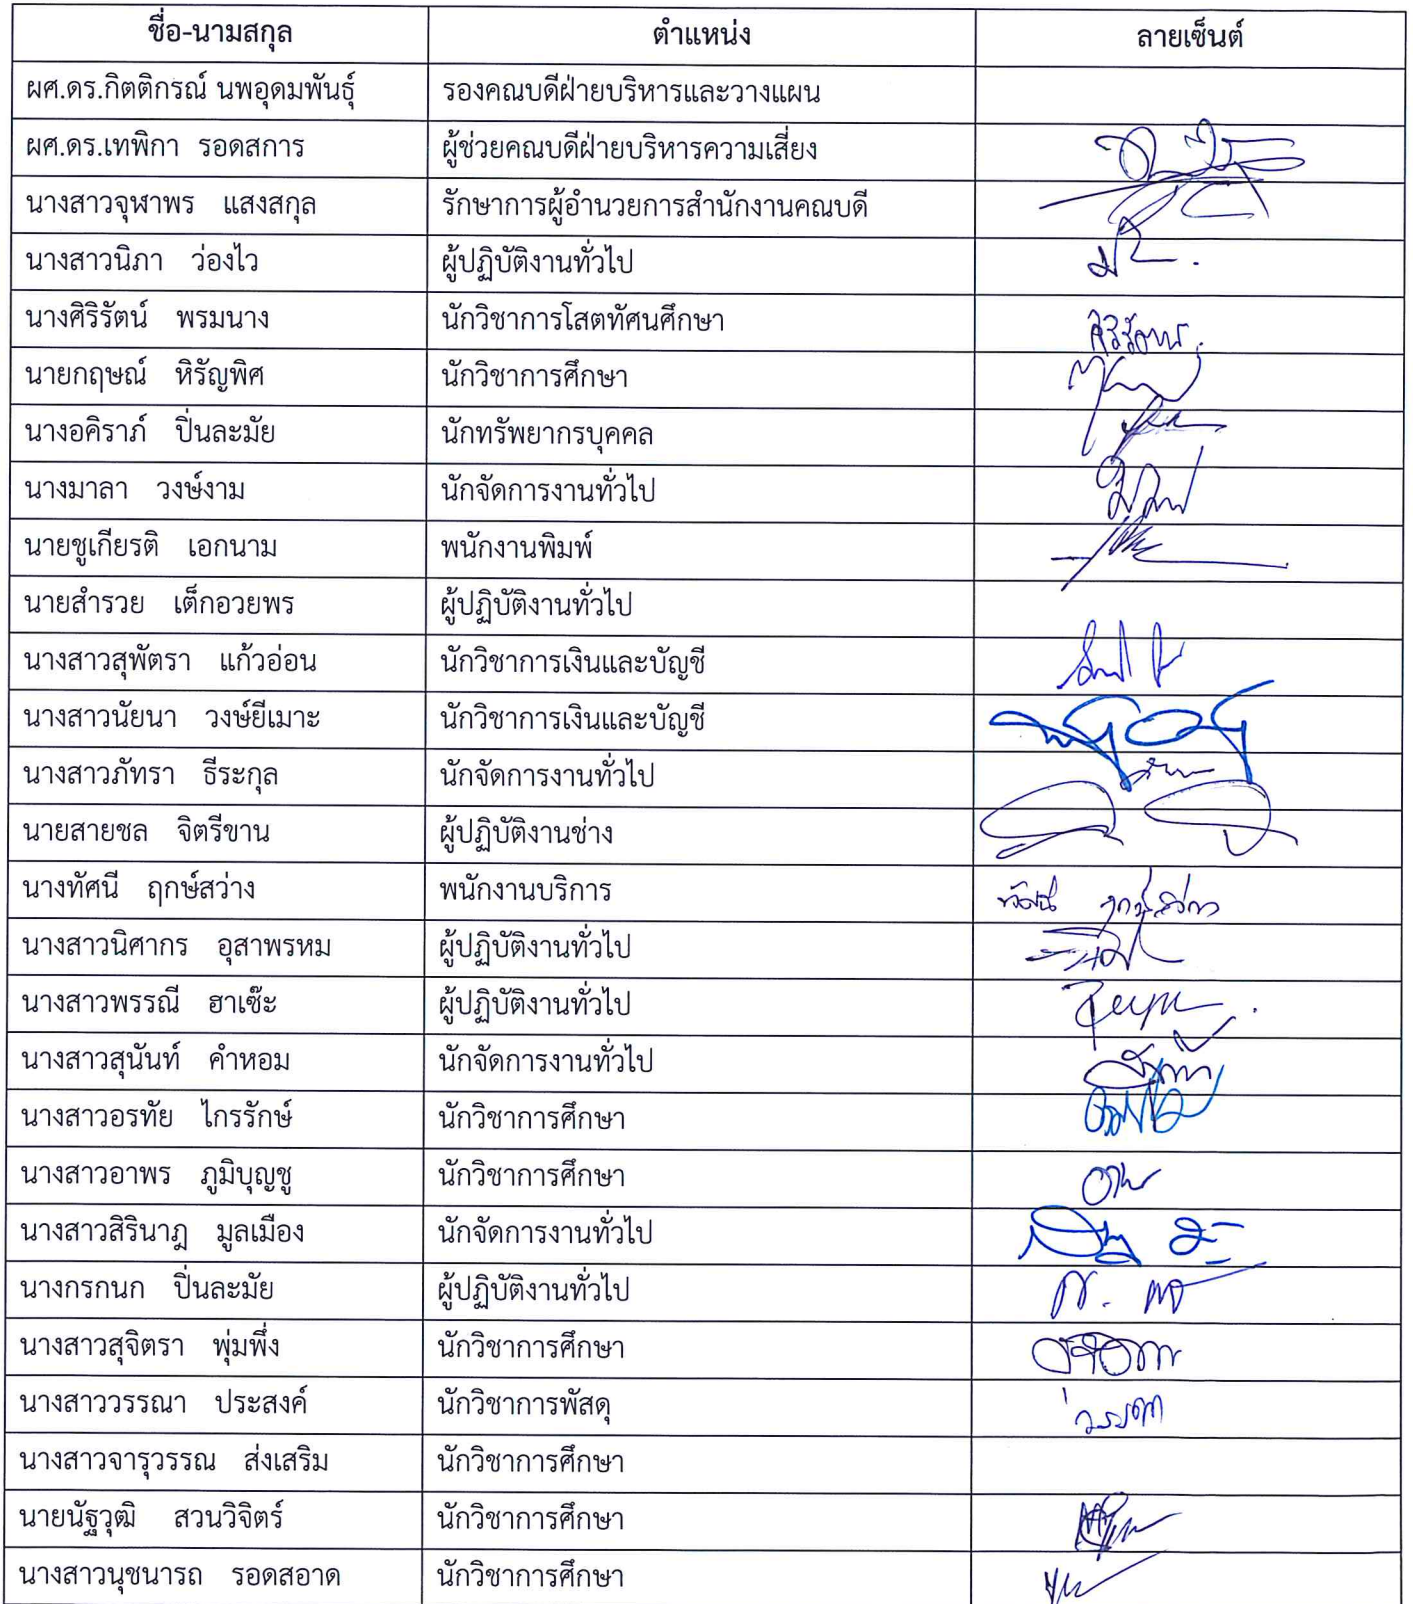 ชื่อ-นามสกุล ตำแหน่ง ลายเซ็นต์
ผศ.ดร.กิตติกรณ์ นพอุดมพันธุ์ รองคณบดีฝ่ายบริหารและวางแผน
ผศ.ดร.เทพิกา รอดสการ ผู้ช่วยคณบดีฝ่ายบริหารความเสี่ยง
นางสาวจุฬาพร แสงสกุล รักษาการผู้อำนวยการสำนักงานคณบดี
นางสาวนิภา ว่องไว ผู้ปฏิบัติงานทั่วไป
นางศิริรัตน์ พรมนาง นักวิชาการโสตทัศนศึกษา ศิริรัตน์
นายกฤษณ์ หิรัญพิศ นักวิชาการศึกษา
นางอคิราภ์ ปิ่นละมัย นักทรัพยากรบุคคล
นางมาลา วงษ์งาม นักจัดการงานทั่วไป
นายชูเกียรติ เอกนาม พนักงานพิมพ์
นายสำรวย เต็กอวยพร ผู้ปฏิบัติงานทั่วไป
นางสาวสุพัตรา แก้วอ่อน นักวิชาการเงินและบัญชี
นางสาวนัยนา วงษ์ยีเมาะ นักวิชาการเงินและบัญชี
นางสาวภัทรา ธีระกุล นักจัดการงานทั่วไป
นายสายชล จิตรีขาน ผู้ปฏิบัติงานช่าง
นางทัศนี ฤกษ์สว่าง พนักงานบริการ ทัศนี ฤกษ์สว่าง
นางสาวนิศากร อุสาพรหม ผู้ปฏิบัติงานทั่วไป
นางสาวพรรณี ฮาเซ๊ะ ผู้ปฏิบัติงานทั่วไป
นางสาวสุนันท์ คำหอม นักจัดการงานทั่วไป
นางสาวอรทัย ไกรรักษ์ นักวิชาการศึกษา
นางสาวอาพร ภูมิบุญชู นักวิชาการศึกษา
นางสาวสิรินาฎ มูลเมือง นักจัดการงานทั่วไป
นางกรกนก ปิ่นละมัย ผู้ปฏิบัติงานทั่วไป
นางสาวสุจิตรา พุ่มพึ่ง นักวิชาการศึกษา
นางสาววรรณา ประสงค์ นักวิชาการพัสดุ วรรณา
นางสาวจารุวรรณ ส่งเสริม นักวิชาการศึกษา
นายนัฐวุฒิ สวนวิจิตร์ นักวิชาการศึกษา
นางสาวนุชนารถ รอดสอาด นักวิชาการศึกษา